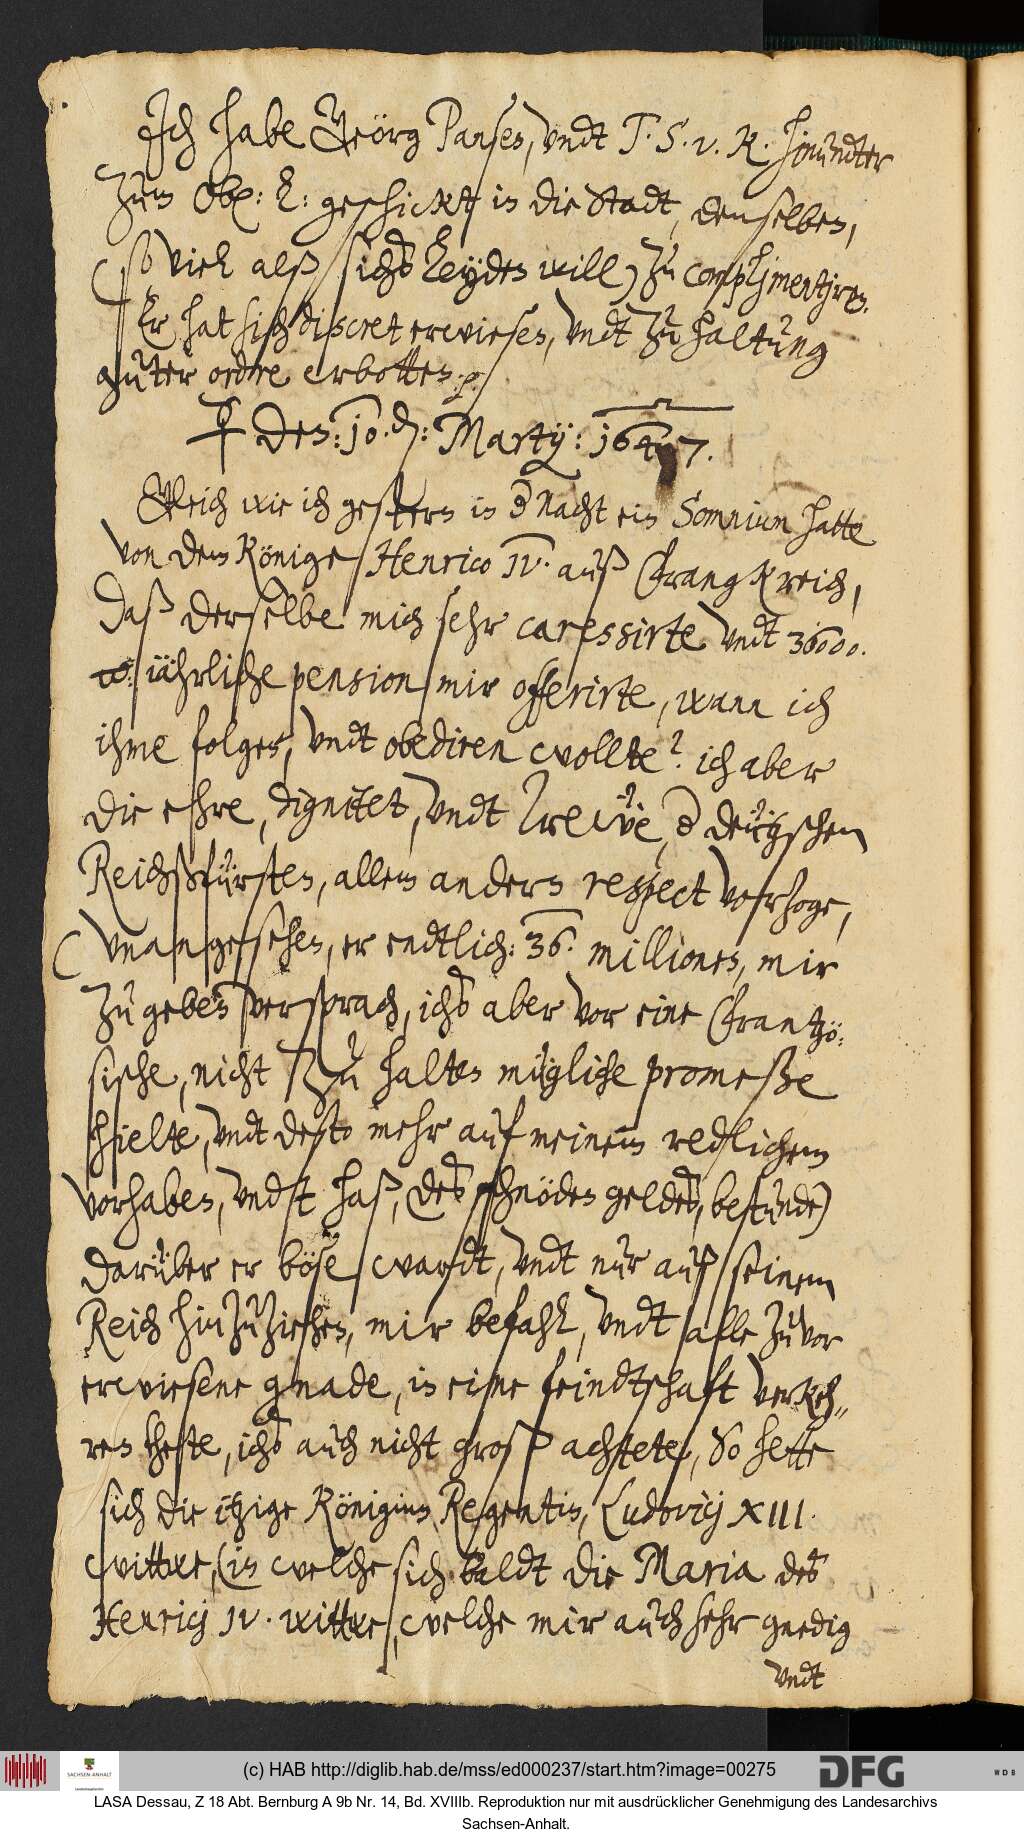 Ich habe Geörg Pansen, vndt T. S. v. K. hinundter
zum Ob: L: geschickt in die Stadt, denselben,
(so viel alß sichs leyden will) zu complimentiren.
Er hat sich discret erwiesen, vndt zu haltung
guter ordre erbotten. p.
Den: 10. d: Martij: 1647.
Gleich wie ich gestern in d nacht ein Somnium hatte
von dem Könige Henrico IV. auß Franckreich,
daß derselbe mich sehr caressirte vndt 36000.
iährliche pension mir offerirte, wann ich
ihme folgen, vndt obediren wollte? ich aber
die ehre, dignitet, vndt Trewe, d deützschen
Reichßfürsten, allem andern respect vorzoge,
(vnangesehen, er endtlich: 36. millionen, mir
zu geben versprach, ichs aber vor eine Frantzö:
sische, nicht zu halten mügliche promeße
hielte, vndt desto mehr auf meinem redlichem
vorhaben, vndt haß, des schnöden geldes, bestünde)
darüber er böse wardt, vndt nur auß seinem
Reich hinzuziehen, mir befahl, vndt alle zuvor
erwiesene gnade, in eine feindtschaft verkeh„
ren thete, ichs auch nicht groß achtete, So hette
sich die itzige Königinn Regentin, Ludovicj XIII.
wittwe, (in welche sich baldt die Maria des
Henricj IV. wittwe, welche mir auch sehr gnedig
vndt
(c) HAB http://diglib.hab.de/mss/ed000237/start.htm?image=00275
DFG
WDB
SACHSEN-ANHALT
LASA Dessau, Z 18 Abt. Bernburg A 9b Nr. 14, Bd. XVIIIb. Reproduktion nur mit ausdrücklicher Genehmigung des Landesarchivs
Sachsen-Anhalt.